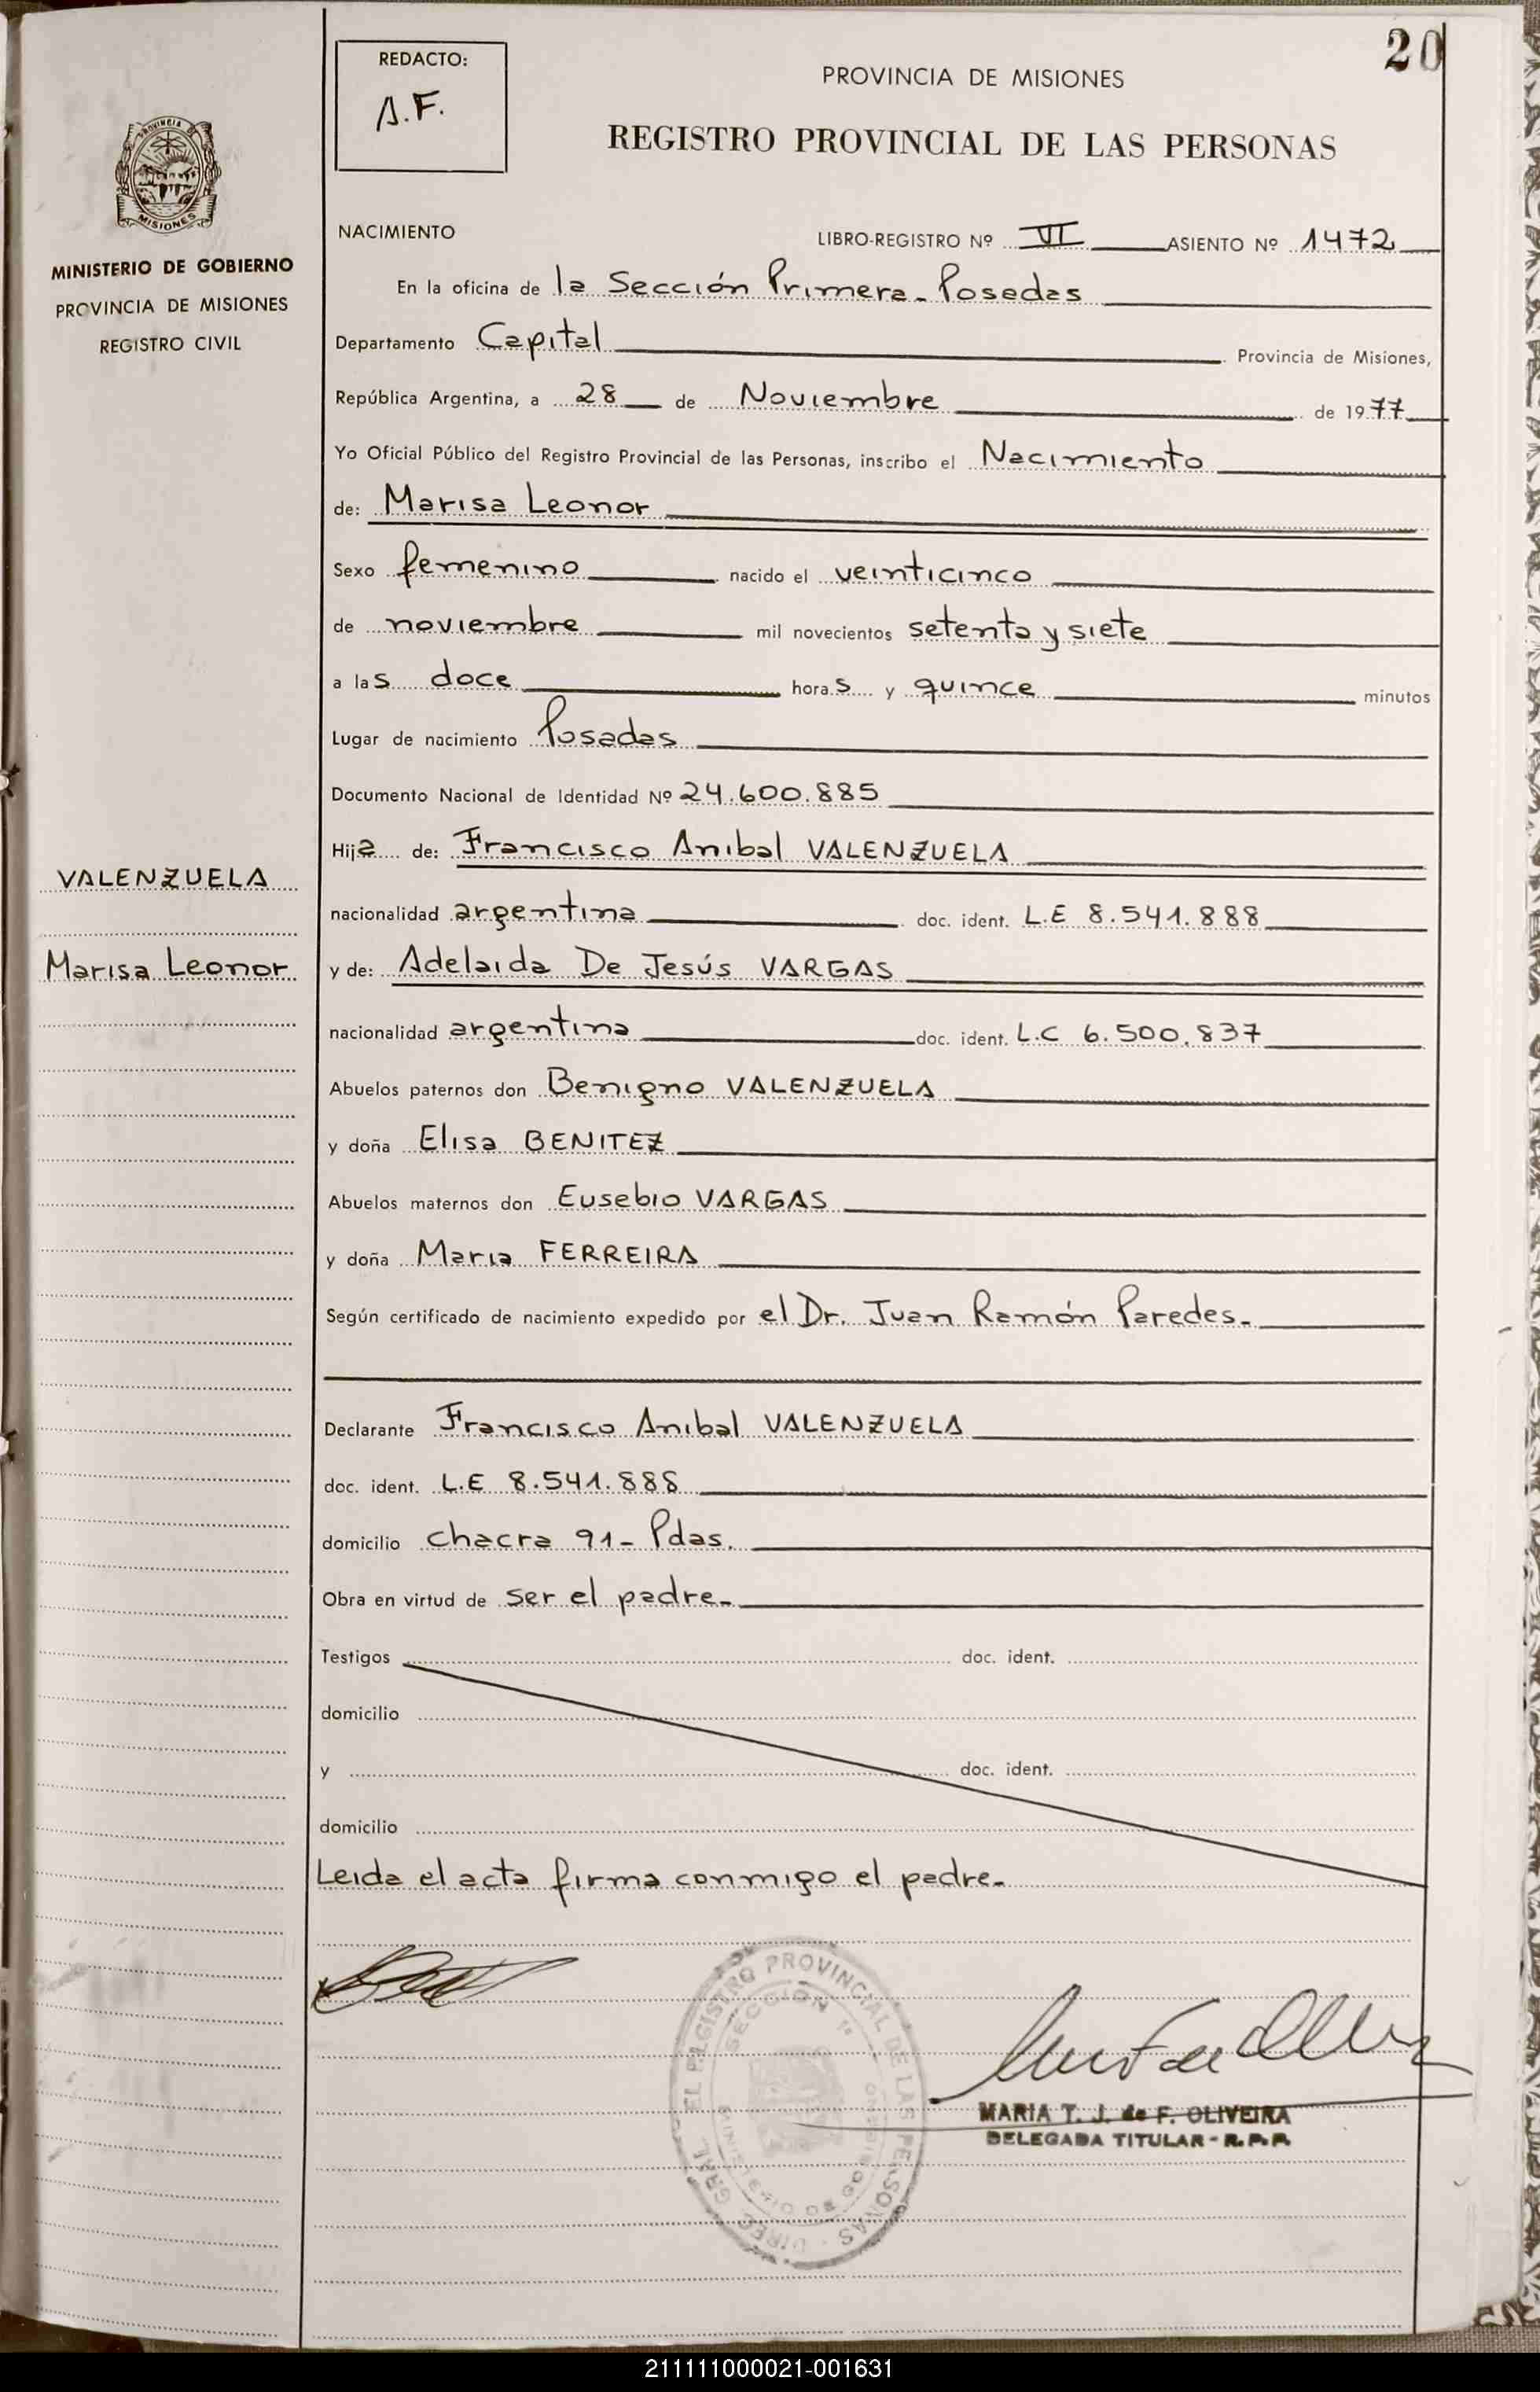 20
REDACTO:
A.F.
PROVINCIA DE MISIONES
REGISTRO PROVINCIAL DE LAS PERSONAS
PROVINCIA DE
MISIONES
MINISTERIO DE GOBIERNO
PROVINCIA DE MISIONES
REGISTRO CIVIL
NACIMIENTO LIBRO-REGISTRO Nº VI ASIENTO Nº 1472
En la oficina de la Sección Primera - Posadas
Departamento Capital Provincia de Misiones,
República Argentina, a 28 de Noviembre de 1977
Yo Oficial Público del Registro Provincial de las Personas, inscribo el Nacimiento
de: Marisa Leonor
Sexo femenino nacido el veinticinco
de noviembre mil novecientos setenta y siete
a las doce horas y quince minutos
Lugar de nacimiento Posadas
Documento Nacional de Identidad Nº 24.600.885
Hija de: Francisco Anibal VALENZUELA
VALENZUELA
nacionalidad argentina doc. ident. L.E 8.541.888
Marisa Leonor
y de: Adelaida De Jesús VARGAS
nacionalidad argentina doc. ident. L.C 6.500.837
Abuelos paternos don Benigno VALENZUELA
y doña Elisa BENITEZ
Abuelos maternos don Eusebio VARGAS
y doña Maria FERREIRA
Según certificado de nacimiento expedido por el Dr. Juan Ramón Paredes.-
Declarante Francisco Anibal VALENZUELA
doc. ident. L.E 8.541.888
domicilio chacra 91 - Pdas.
Obra en virtud de ser el padre.-
Testigos doc. ident.
domicilio
y doc. ident.
domicilio
Leida el acta firma conmigo el padre.-
DIREC. GRAL. DEL REGISTRO PROVINCIAL DE LAS PERSONAS
SECCION 1ª
MINISTERIO DE GOBIERNO
MARIA T. J. de F. OLIVEIRA
DELEGADA TITULAR - R.P.P.
211111000021-001631